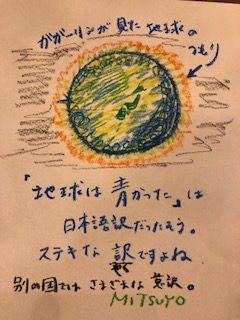 ガガーリンが見た地球の
つもり
「地球は青かった」は
日本語訳だったそう。
ステキな訳ですよね
やく
別の国では さまざまな意訳。
MITSUYO